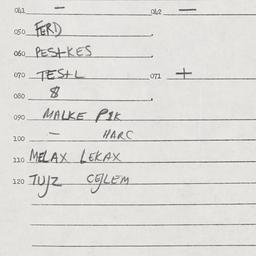 041 — 042 —
050 FERD
060 PES+KES
070 TES+L 071 +
080 8
090 MALKE P1K
100 — HARC
110 MELAX LEKAX
120 TUJZ CEJLEM